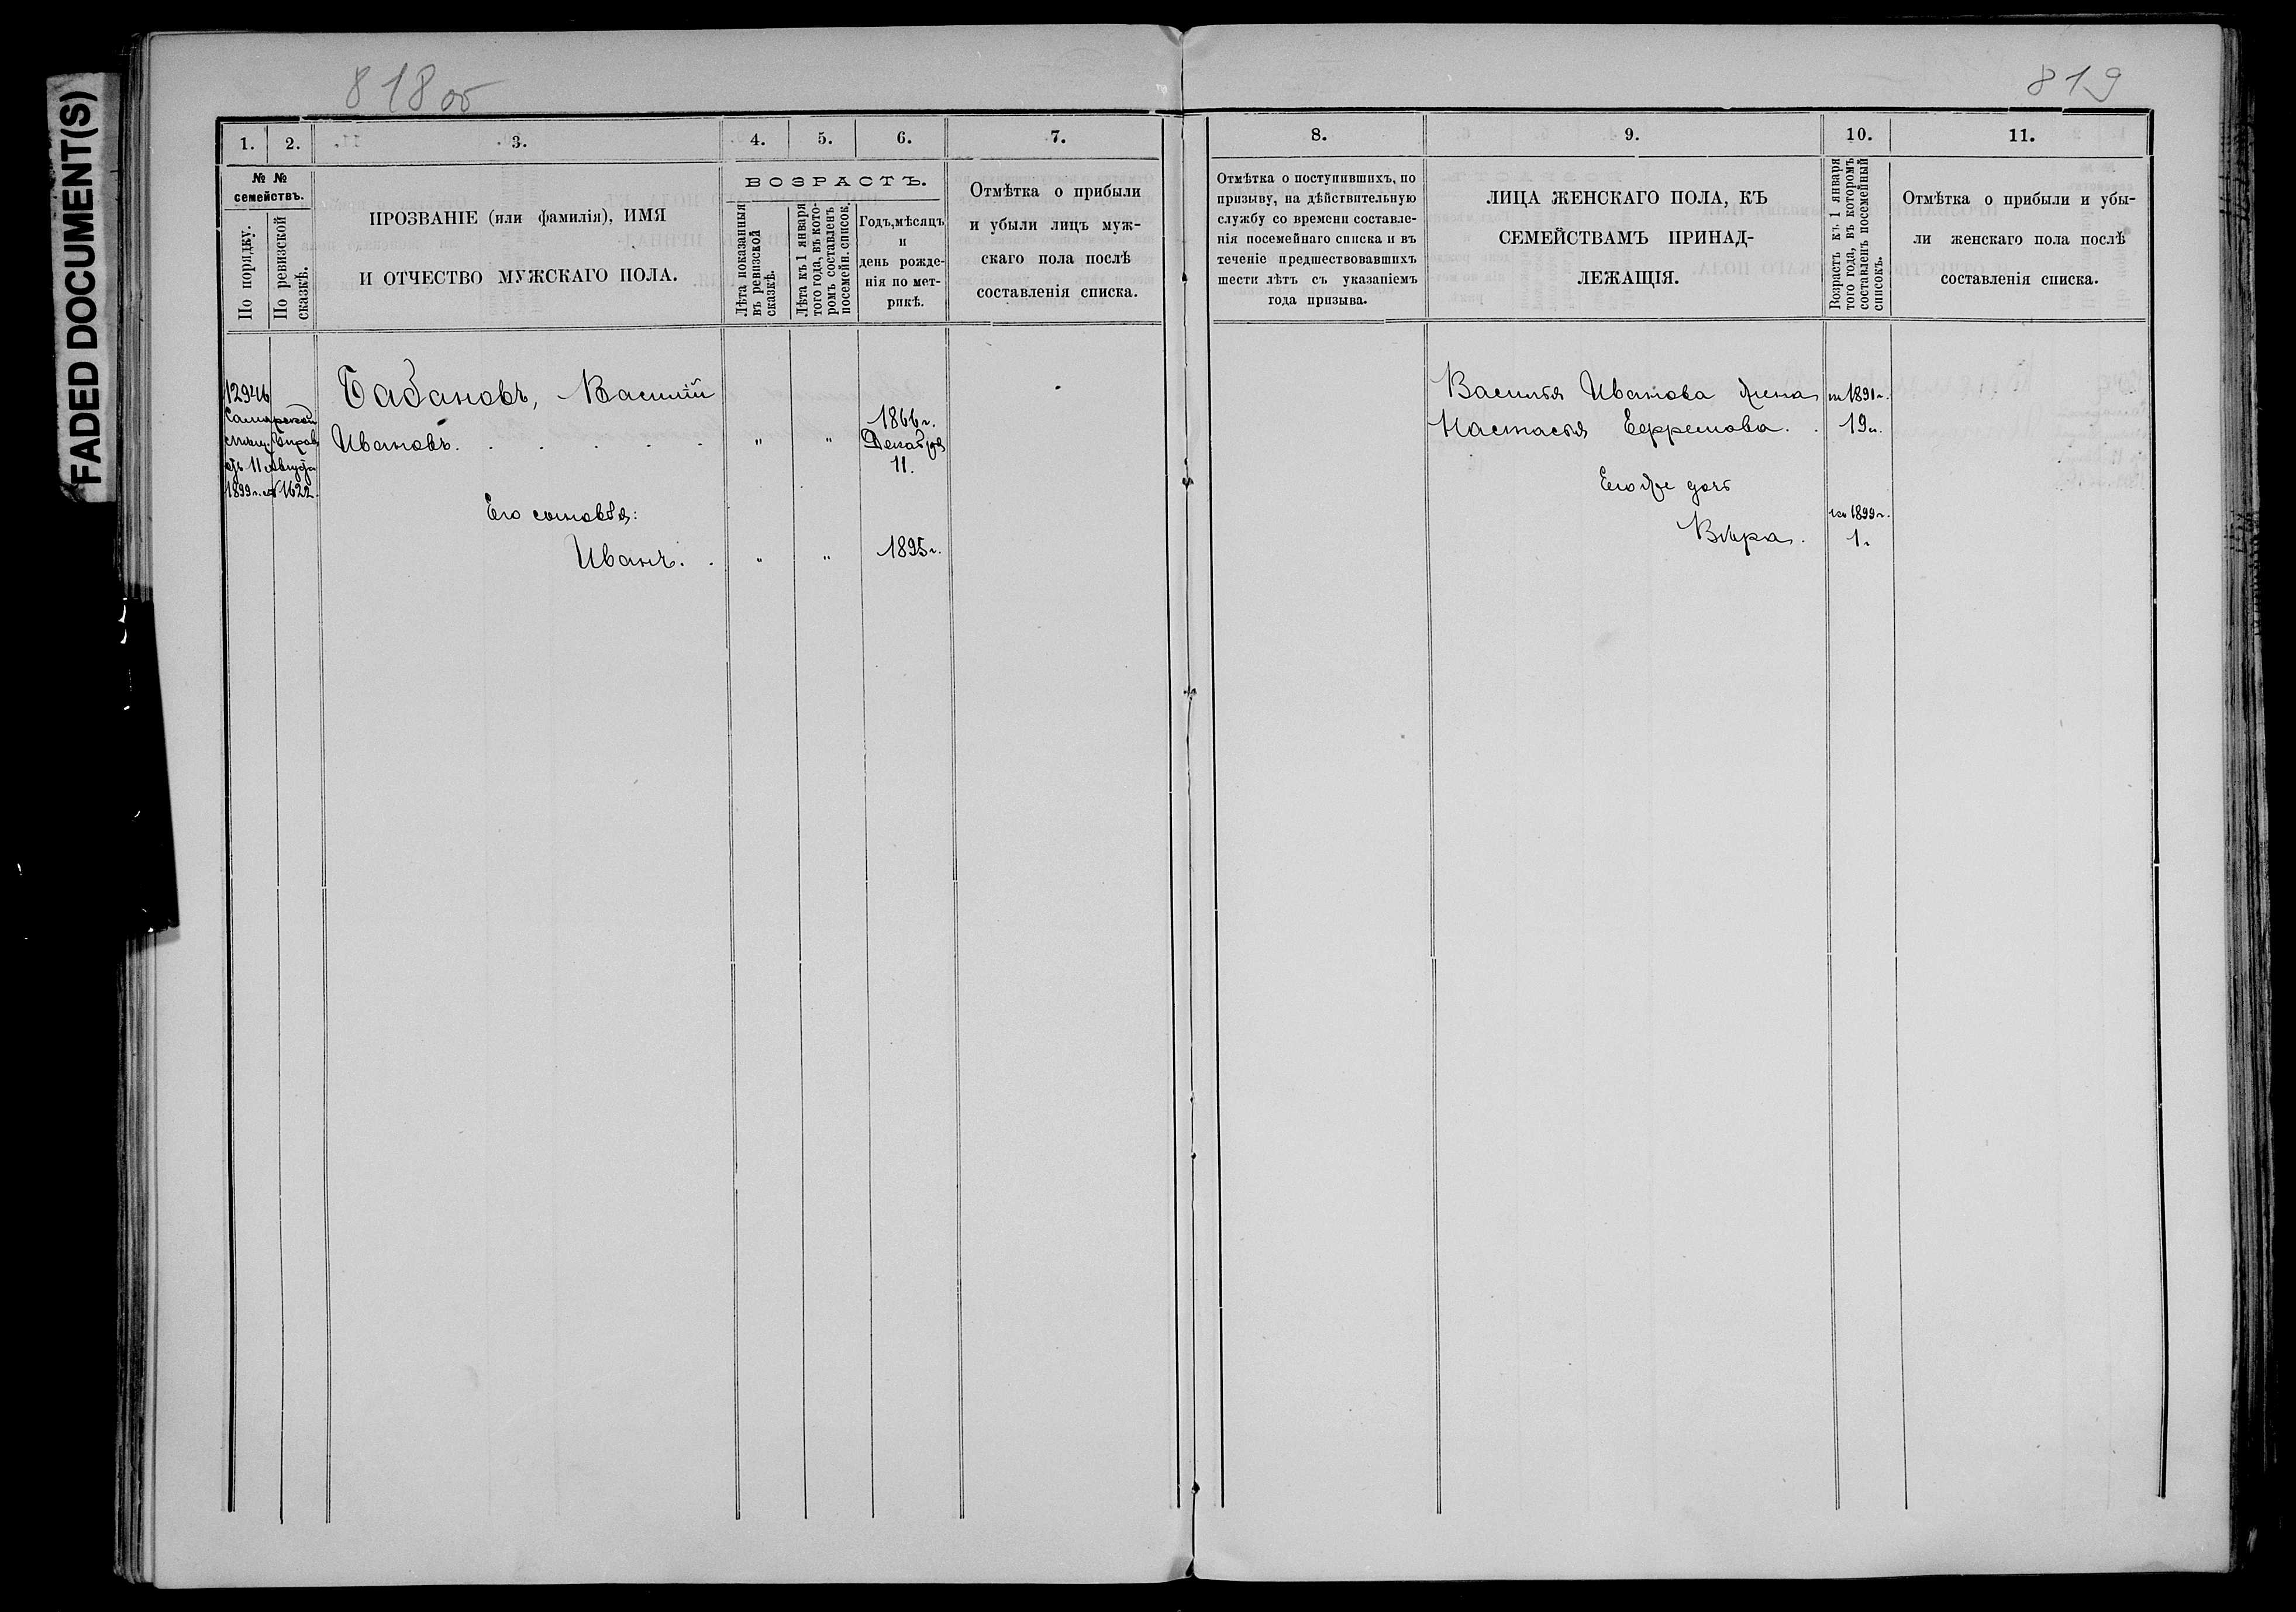 FADED DOCUMENT(S)
818 об
1. 2. 3. 4. 5. 6. 7.
№ №
семействъ.
По порядку.
По ревизской
сказкѣ.
ПРОЗВАНІЕ (или фамилія), ИМЯ
И ОТЧЕСТВО МУЖСКАГО ПОЛА.
ВОЗРАСТЪ.
Лѣта показанныя
въ ревизской
сказкѣ.
Лѣта къ 1 января
того года, въ кото-
ромъ составленъ
посемейн. список.
Годъ, мѣсяцъ
и
день рожде-
нія по мет-
рикѣ.
Отмѣтка о прибыли
и убыли лицъ муж-
скаго пола послѣ
составленія списка.
12946
Самарской
мѣщ. Управ.
отъ 11 Августа
1899 г. № 1622.
Бабановъ, Василій
Ивановъ. . . . . . " "
1866 г.
Декабря
11.
Его сыновья:
Иванъ. . " " 1895 г.
819
8. 9. 10. 11.
Отмѣтка о поступившихъ, по
призыву, на дѣйствительную
службу со времени составле-
нія посемейнаго списка и въ
теченіе предшествовавшихъ
шести лѣтъ съ указаніемъ
года призыва.
ЛИЦА ЖЕНСКАГО ПОЛА, КЪ
СЕМЕЙСТВАМЪ ПРИНАД-
ЛЕЖАЩІЯ.
Возрастъ къ 1 января
того года, въ которомъ
составленъ посемейный
списокъ.
Отмѣтка о прибыли и убы-
ли женскаго пола послѣ
составленія списка.
Василья Иванова жена 1891 г.
Настасья Ефремова. . 19 л.
Его же дочь
къ 1899 г.
Вѣра. 1.